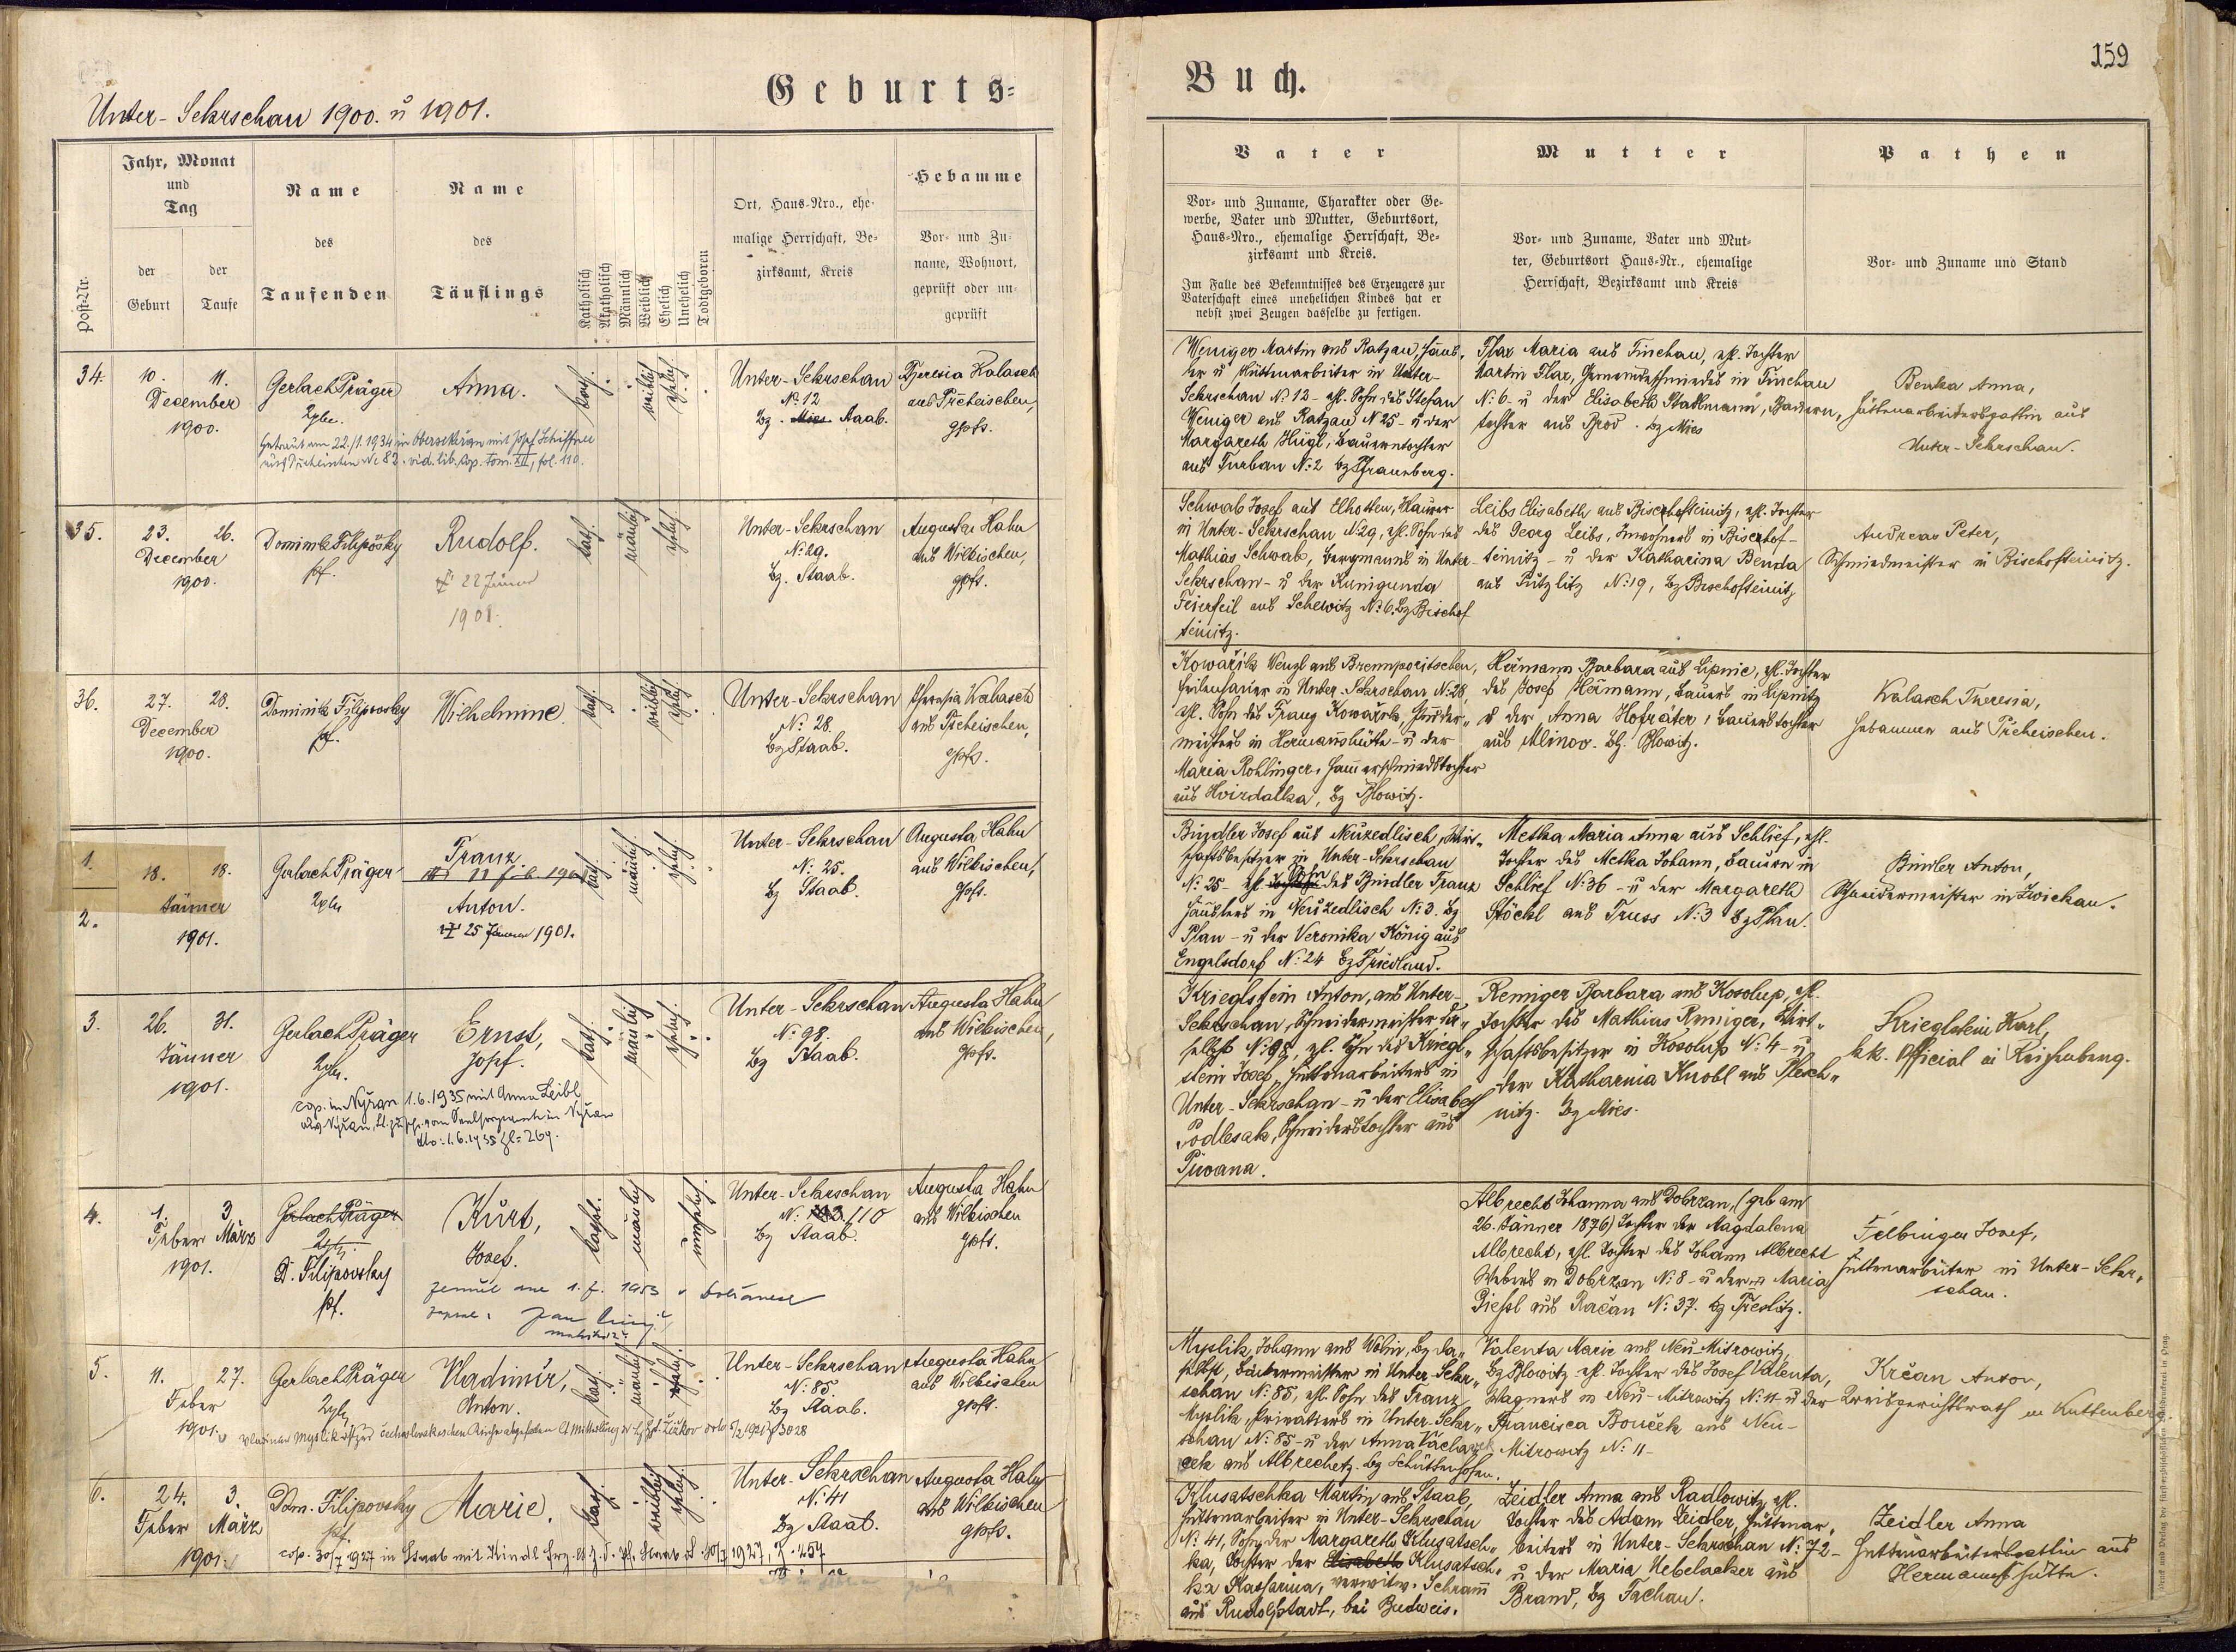 159
Geburts=
Buch.
Unter-Sekrschan 1900. ü 1901.
Post-Nr.
Jahr, Monat
und
Tag
der
Geburt
der
Taufe
Name
des
Taufenden
Name
des
Täuflings
Katholisch
Akatholisch
Männlich
Weiblich
Ehelich
Unehelich
Todtgeboren
Ort, Haus-Nro., ehe-
malige Herrschaft, Be-
zirksamt, Kreis
Hebamme
Vor- und Zu-
name, Wohnort,
geprüft oder un-
geprüft
Vater
Vor- und Zuname, Charakter oder Ge-
werbe, Vater und Mutter, Geburtsort,
Haus-Nro., ehemalige Herrschaft, Be-
zirksamt und Kreis.
Im Falle des Bekenntnisses des Erzeugers zur
Vaterschaft eines unehelichen Kindes hat er
nebst zwei Zeugen dasselbe zu fertigen.
Mutter
Vor- und Zuname, Vater und Mut-
ter, Geburtsort Haus-Nr., ehemalige
Herrschaft, Bezirksamt und Kreis
Pathen
Vor- und Zuname und Stand
34.
10. 11.
December
1900.
Gerlach Präger
Anna.
kath.
weiblich
ehelich
Unter-Sekrschan
N: 12
Bz. Mies Staab.
Theresia Kalasch
aus Tscheischen,
gpft.
Getraut am 22./1. 1934 in Obersekrschan mit Josef Schiffner
N: 82. vid. lib. cop. tom. XII, fol. 110.
Weniger Martin aus Ratzau, Häus-
ler ü Hüttenarbeiter in Unter-
Sekrschan N: 12 - ehl. Sohn des Stefan
Weniger aus Ratzau N 25 - ü der
Margareth Hügl, Bauerntochter
aus Turban N: 2 bz Pfraumberg.
Flax Maria aus Tinchau, ehl. Tochter
Martin Flax, Gemeindeschmiedes in Tinchau
N: 6 - ü der Elisabeth Stallmann, Bauern-
tochter aus Prod. bz Mies
Benka Anna,
Hüttenarbeitersgattin aus
Unter-Sekrschan.
35.
23. 26.
December
1900.
Dominik Filipovsky
pf.
Rudolf.
† 22 Jänner
1901.
kath.
männlich
ehelich
Unter-Sekrschan
N: 29.
Bz. Staab.
Augusta Hahn
aus Wilkischen,
gpft.
Schwab Josef aus Elhotten, Häuer
in Unter-Sekrschan N: 29, ehl. Sohn des
Mathias Schwab, Bergmanns in Unter-
Sekrschan - ü der Kunigunda
Feierfeil aus Schewitz N: 6. Bz Bischof
teinitz.
Leibs Elisabeth aus Bischofteinitz, ehl. Tochter
des Georg Leibs, Inwohners in Bischof-
teinitz - ü der Katharina Benda
aus Putzlitz N: 19, Bz Bischofteinitz
Andreas Peter,
Schmiedmeister in Bischofteinitz.
36.
27. 28.
December
1900.
Dominik Filipovsky
pf.
Wilhelmine.
kath.
weiblich
ehelich
Unter-Sekrschan
N: 28.
Bz Staab.
Theresia Kalasch
aus Tscheischen,
gpft.
Kowařik Wenzl aus Brennporitschen,
Feilenhauer in Unter-Sekrschan N: 28,
ehl. Sohn des Franz Kowařik,
meisters in Hermannshütte - ü der
Maria Rohlinger, Hammerschmiedstochter
aus Hvizdalka, Bz Blowitz.
Heřmann Barbara aus Lipnic, ehl. Tochter
des Josef Heřmann, Bauers in Lipnitz
ü der Anna Hofräter, Bauerstochter
aus Mlinov. Bz. Blowitz.
Kalasch Theresia,
Hebamme aus Tscheischen.
1.
2.
18. 18.
Jänner
1901.
Gerlach Präger
Franz
Anton.
† 25 Jänner 1901.
kath.
männlich
ehelich
Unter-Sekrschan
N: 25.
Bz Staab.
Augusta Hahn
aus Wilkischen,
gpft.
Bindler Josef aus Neuzedlisch, Wirt-
schaftsbesitzer in Unter-Sekrschan
N: 25 - ehl. Sohn des Bindler Franz
Häuslers in Neuzedlisch N: 3. Bz
Plan - ü der Veronika König aus
Engelsdorf N: 24 Bz Friedland.
Metka Maria Anna aus Schlief, ehl.
Tochter des Metka Johann, Bauern in
Schlief N: 36 - ü der Margareth
Stöckl aus Truss N: 3 Bz Plan.
Bindler Anton,
Schneidermeister in Zwickau.
3.
26. 31.
Jänner
1901.
Gerlach Präger
Ernst,
Josef.
kath.
männlich
ehelich
Unter-Sekrschan
N: 98.
Bz Staab.
Augusta Hahn
aus Wilkischen,
gpft.
cop. in Nyřan 1.6.1935 mit Anna Leibl
aus Nyřan, lt. Zuschr. vom Seelsorgeamte in Nyřan
dto: 1.6.1935 Zl: 269.
Krieglstein Anton, aus Unter-
Sekrschan, Schneidermeister da-
selbst N: 98, ehl. Sohn des Kriegl-
stein Josef, Hüttenarbeiters in
Unter-Sekrschan - ü der Elisabeth
Podlesak, Schneiderstochter aus
Piwana.
Remiger Barbara aus Kosolup, ehl.
Tochter des Mathias Remiger, Wirt-
schaftsbesitzer in Kosolup N: 4 - ü
der Katharina Knobl aus Plesch-
nitz. Bz Mies.
Krieglstein Karl,
k.k. Official in Reichenberg.
4.
1. 3.
Feber März
1901.
Gerlach Präger
D. Filipovsky
pf.
Kurt,
Josef.
kathol.
männlich
unehelich
Unter-Sekrschan
N: 110
Bz Staab.
Augusta Hahn
aus Wilkischen
gpft.
zemřel dne 1. 7. 1953 v
Albrecht Johanna aus Dobrzan, (geb am
26. Jänner 1876) Tochter der Magdalena
Albrecht, ehl. Tochter des Johann Albrecht
Webers in Dobrzan N: 8 - ü der Maria
Piehsl aus Račan N: 37. bz Przestitz.
Felbinger Josef,
Hüttenarbeiter in Unter-Sekr-
schan.
5.
11. 27.
Feber
1901.
Gerlach Präger
Vladimir,
Anton.
kath.
männlich
ehelich
Unter-Sekrschan
N: 85.
Bz Staab.
Augusta Hahn
aus Wilkischen
gpft.
Vladimir Myslik ist zur čechoslovakischen Kirche abgefallen lt Mitteilung der Žižkov
Myslik, Johann aus Wolin, Bz da-
selbst, Bäckermeister in Unter-Sekr-
schan N: 85, ehl. Sohn des Franz
Myslik, Privatiers in Unter-Sekr-
schan N: 85 - ü der Anna
aus Albrechetz. Bz Schüttenhofen.
Valenta Marie aus Neu-Mitrowitz,
Bz Blowitz - ehl. Tochter des Josef Valenta,
Wagners in Neu-Mitrowitz N: 11 - ü der
Francisca Bouček aus Neu-
Mitrowitz N: 11 -
Krčan Anton,
Kreisgerichtsrath in Kuttenberg.
6.
24. 3.
Feber März
1901.
Dom. Filipovsky
pf.
Marie.
kath.
weiblich
ehelich
Unter-Sekrschan
N: 41
Bz Staab.
Augusta Hahn
aus Wilkischen
gpft.
cop. 30/7 1927 in Staab mit Kindl
Klusatschka Martin aus Staab,
Hüttenarbeiter in Unter-Sekrschan
N: 41, Sohn der Margareth Klusatsch-
ka, Tochter der Elisabeth Klusatsch-
ka Katharina, verwitw. Schramm
aus Rudolfstadt, bei Budweis.
Zeidler Anna aus Radlowitz, ehl.
Tochter des Adam Zeidler, Hüttenar-
beiters in Unter-Sekrschan N: 72 -
ü der Maria Nebelacker aus
Brand, Bz Tachau.
Zeidler Anna
Hüttenarbeitersgattin aus
Hermannshütte.